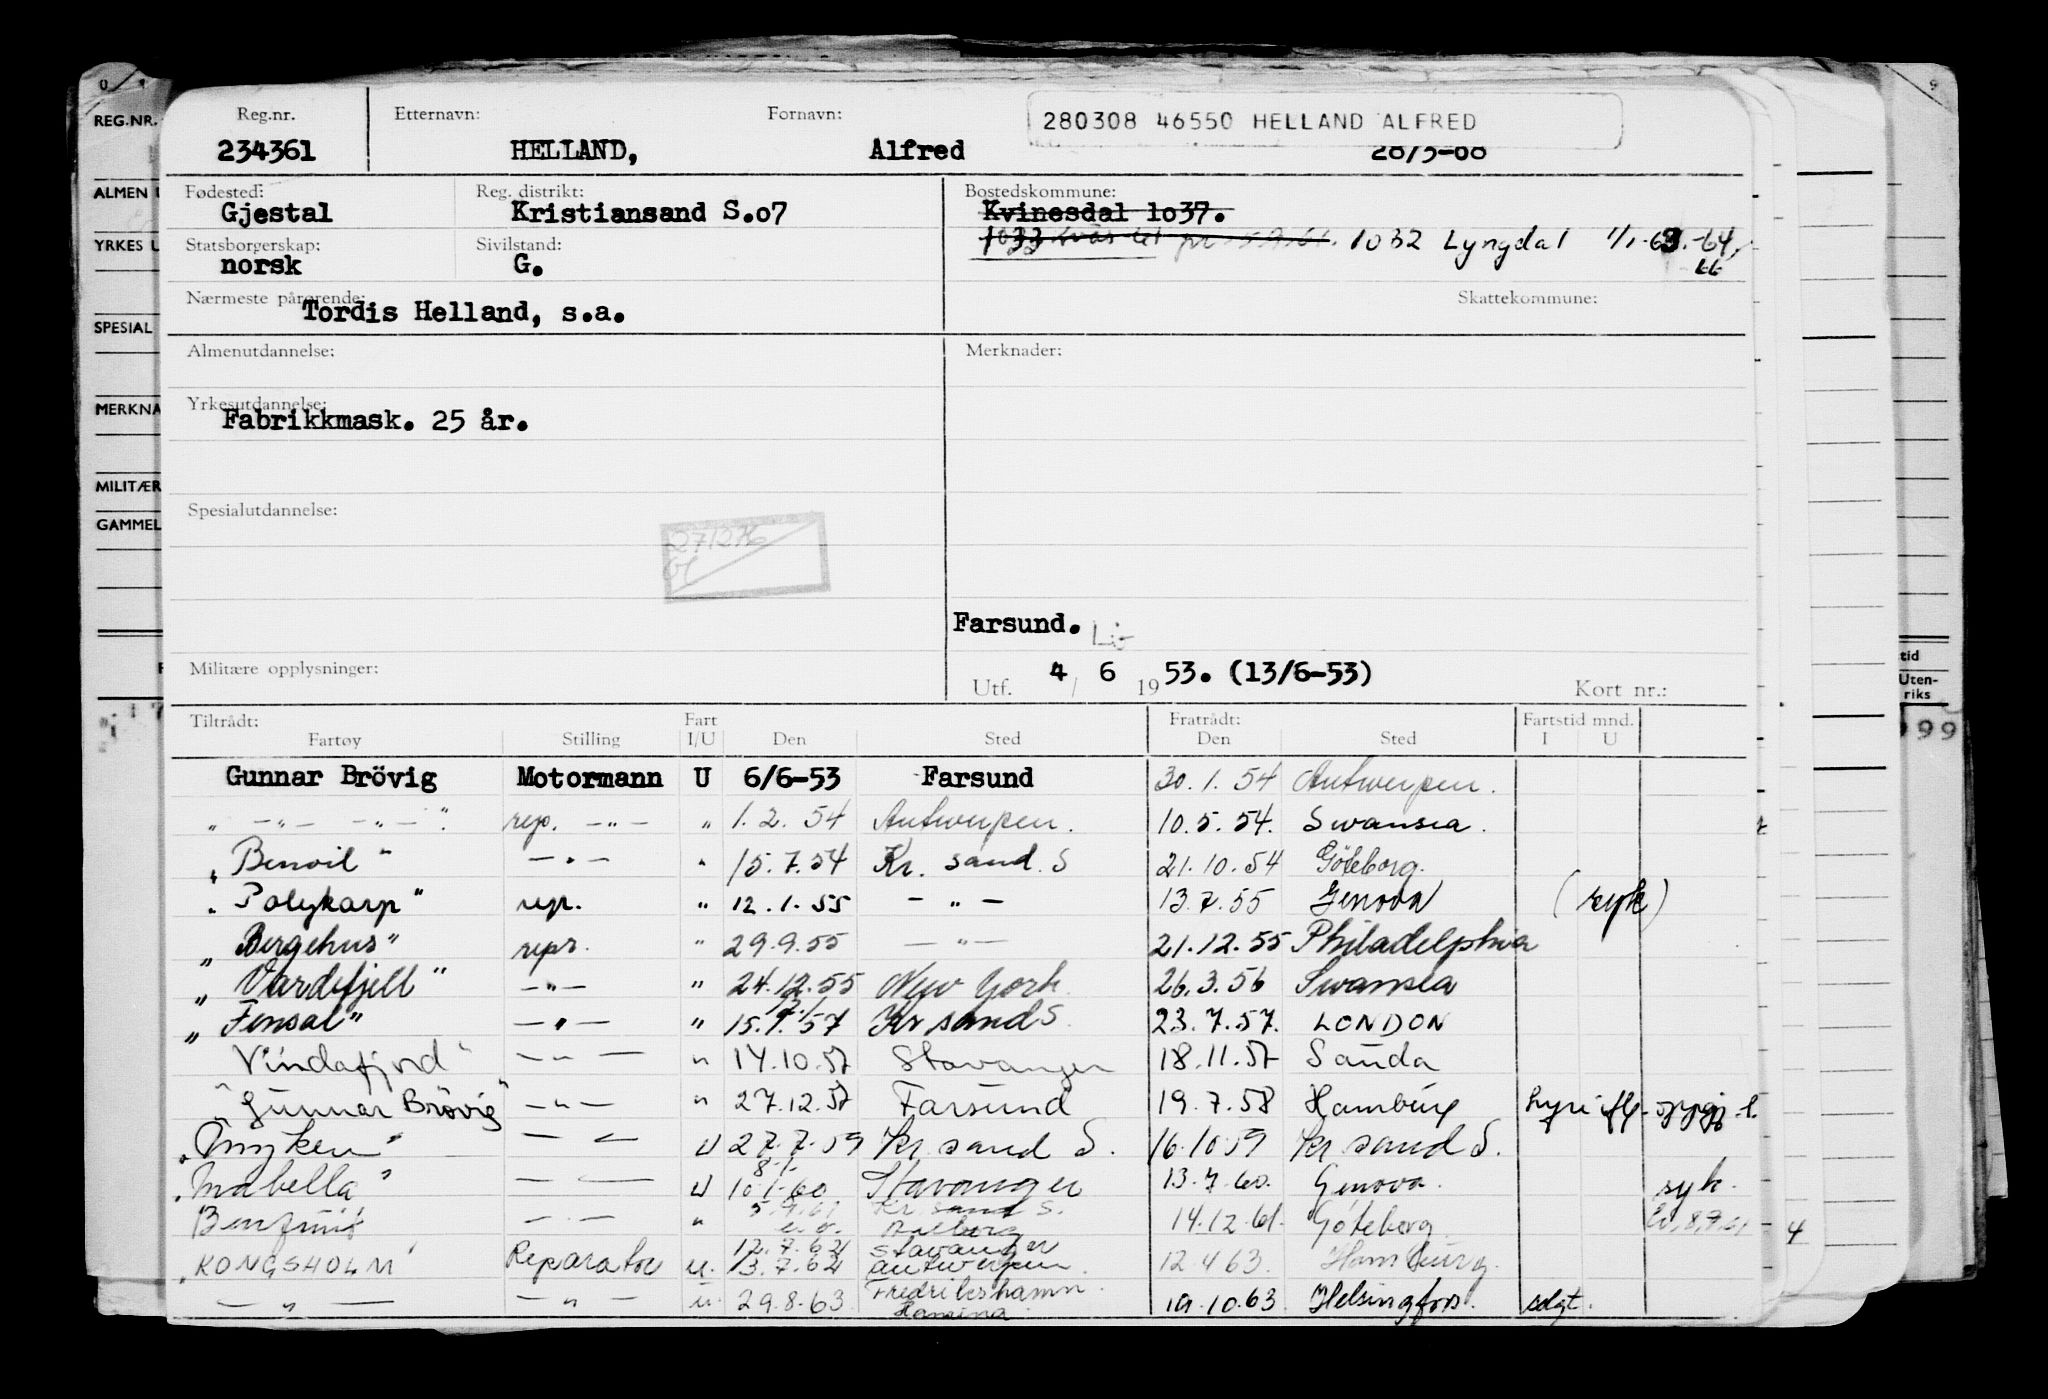 REG.NR.
ALMEN
YRKES
SPESIAL
MERKNA
MILITÆR
GAMMEL
Reg.nr. Etternavn: Fornavn: 280308 46550 HELLAND ALFRED
234361 HELLAND, Alfred 28/3-08
Fødested: Reg. distrikt: Bostedskommune:
Gjestal Kristiansand S.o7 Kvinesdal 1o37.
1033 1032 Lyngdal 1/1-63.-64,
Statsborgerskap: Sivilstand:
norsk G.
Nærmeste pårørende: Skattekommune:
Tordis Helland, s.a.
Almenutdannelse: Merknader:
Yrkesutdannelse:
Fabrikkmask. 25 år.
Spesialutdannelse:
271276
Farsund.
Militære opplysninger:
Utf. 4 / 6 1953. (13/6-53) Kort nr.:
Tiltrådt: Fart Fratrådt: Fartstid mnd.
Fartøy Stilling I/U Den Sted Den Sted I U
Gunnar Brövig Motormann U 6/6-53 Farsund 30.1.54 Antwerpen.
" -"- -"-". rep. -"- " 1.2.54 Antwerpen. 10.5.54. Swansea.
"Benoil" -"- " 15.7.54 Kr. sand. S 21.10.54 Göteborg.
"Polykarp" rep. " 12.1.55 -"- 13.7.55 Genova (syk)
"Bergehus" repr. " 29.9.55 -"- 21.12.55 Philadelphia
"Vardefjell" -"- " 24.12.55 New York. 26.3.56 Swansea
"Fensal" -"- " 15.1.57 Kr sand S. 23.7.57. LONDON
Vindafjord" -"- " 14.10.57 Stavanger 18.11.57 Sauda
"Gunnar Brövig" -"- " 27.12.57 Farsund 19.7.58 Hamburg
"Myken" -"- U 27.7.59 Kr sand S. 16.10.59 Kr sand S.
8.1.
"Mabella" -"- U 10.1.60 Stavanger 13.7.60. Genova. syk.
5.9.61 Kr. sand S.
-"- " Aalborg 14.12.61. Göteborg - 4
12.7.62 Stavanger
"KONGSHOLM" Reparatør u. 13.7.62 Antwerpen. 12.4.63. Hamburg.
-"- -"- u. 29.8.63 Fredrikshamn. 10.63 Helsingfors. solgt.
Hamina
tid
Uten-
riks
99